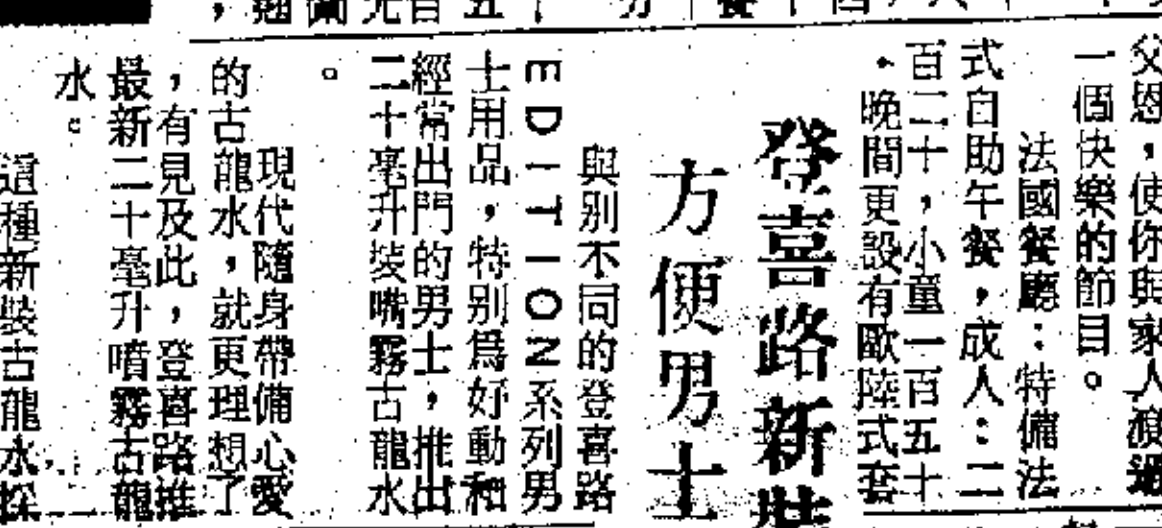 父恩，使你與家人渡過
一個快樂的節目。
法國餐廳：特備法
式自助午餐，成人：二
百二十，小童一百五十
。晚間更設有歐陸式套
登喜路新裝
方便男士
與別不同的登喜路
EDITION系列男
士用品，特別爲好動和
經常出門的男士，推出
二十毫升裝嘴霧古龍水
。
現代隨身帶備心愛
的古龍水，就更理想了
，有見及此，登喜路推
最新二十毫升噴霧古龍
水。
這種新裝古龍水採